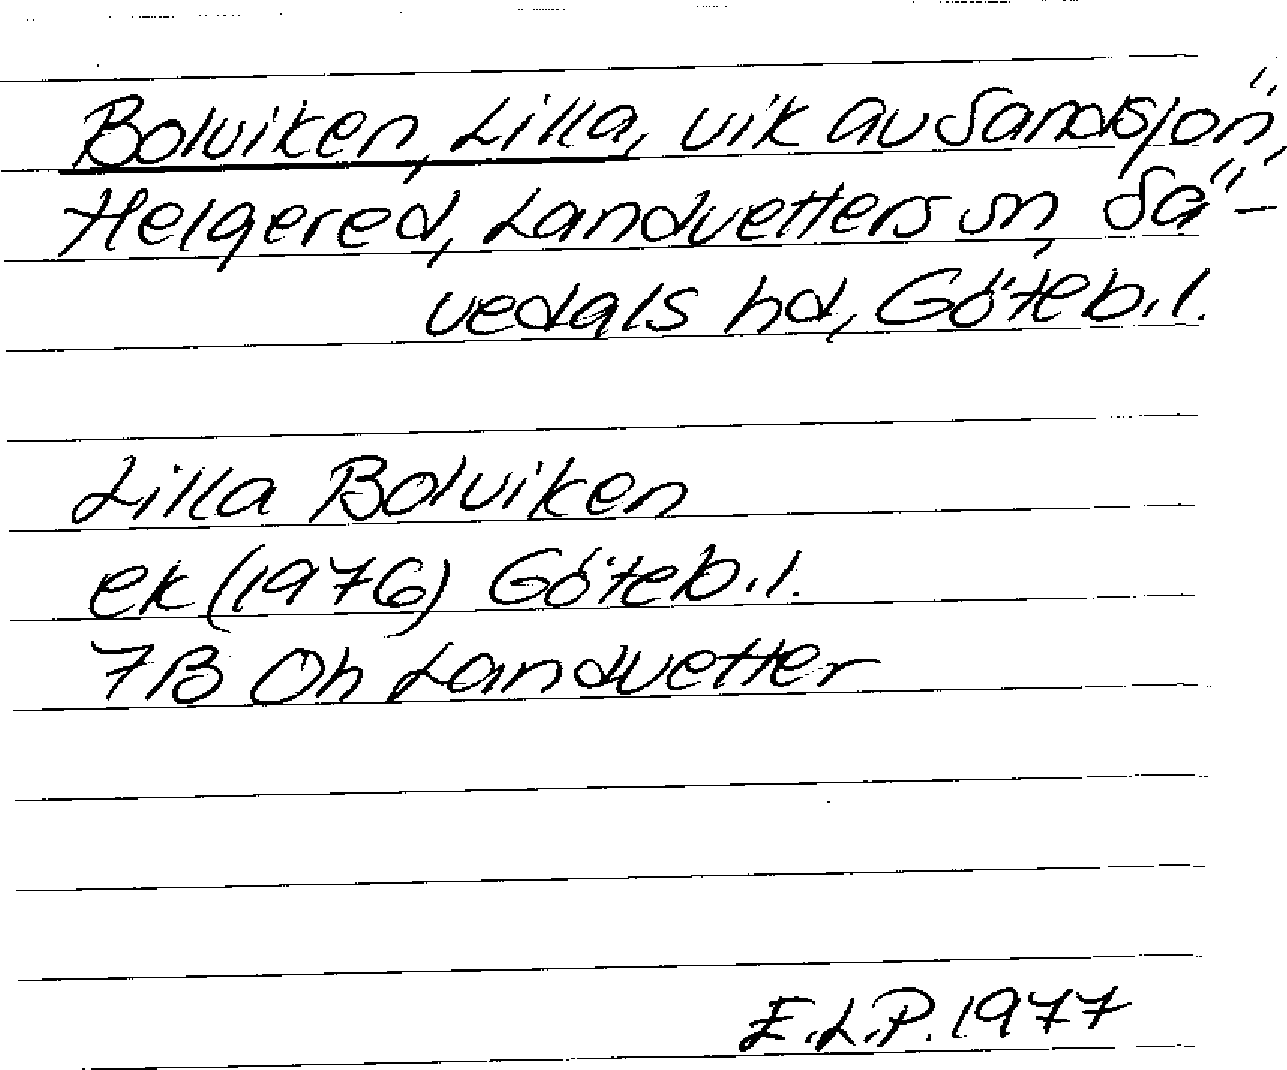 Bolviken, Lilla, vik av Sandsjön,
Helgered, Landvetters sn, Sä-
vedals hd, Göteb.l.
Lilla Bolviken
ek (1976) Göteb.l.
7B Oh Landvetter
E.L.P. 1977